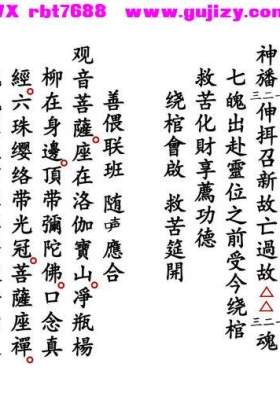 WX rbt7688 www.gujizy.com
神旛三一二伸拜召新故亡過故△△三一二魂
七魄出赴靈位之前受今绕棺
救苦化財享薦功德
绕棺會啟 救苦筵開
善偎联班 随声應合
观音菩薩座在洛伽寶山淨瓶楊
柳在身邊頂带彌陀佛口念真
經六珠缨络带光冠菩薩座禪